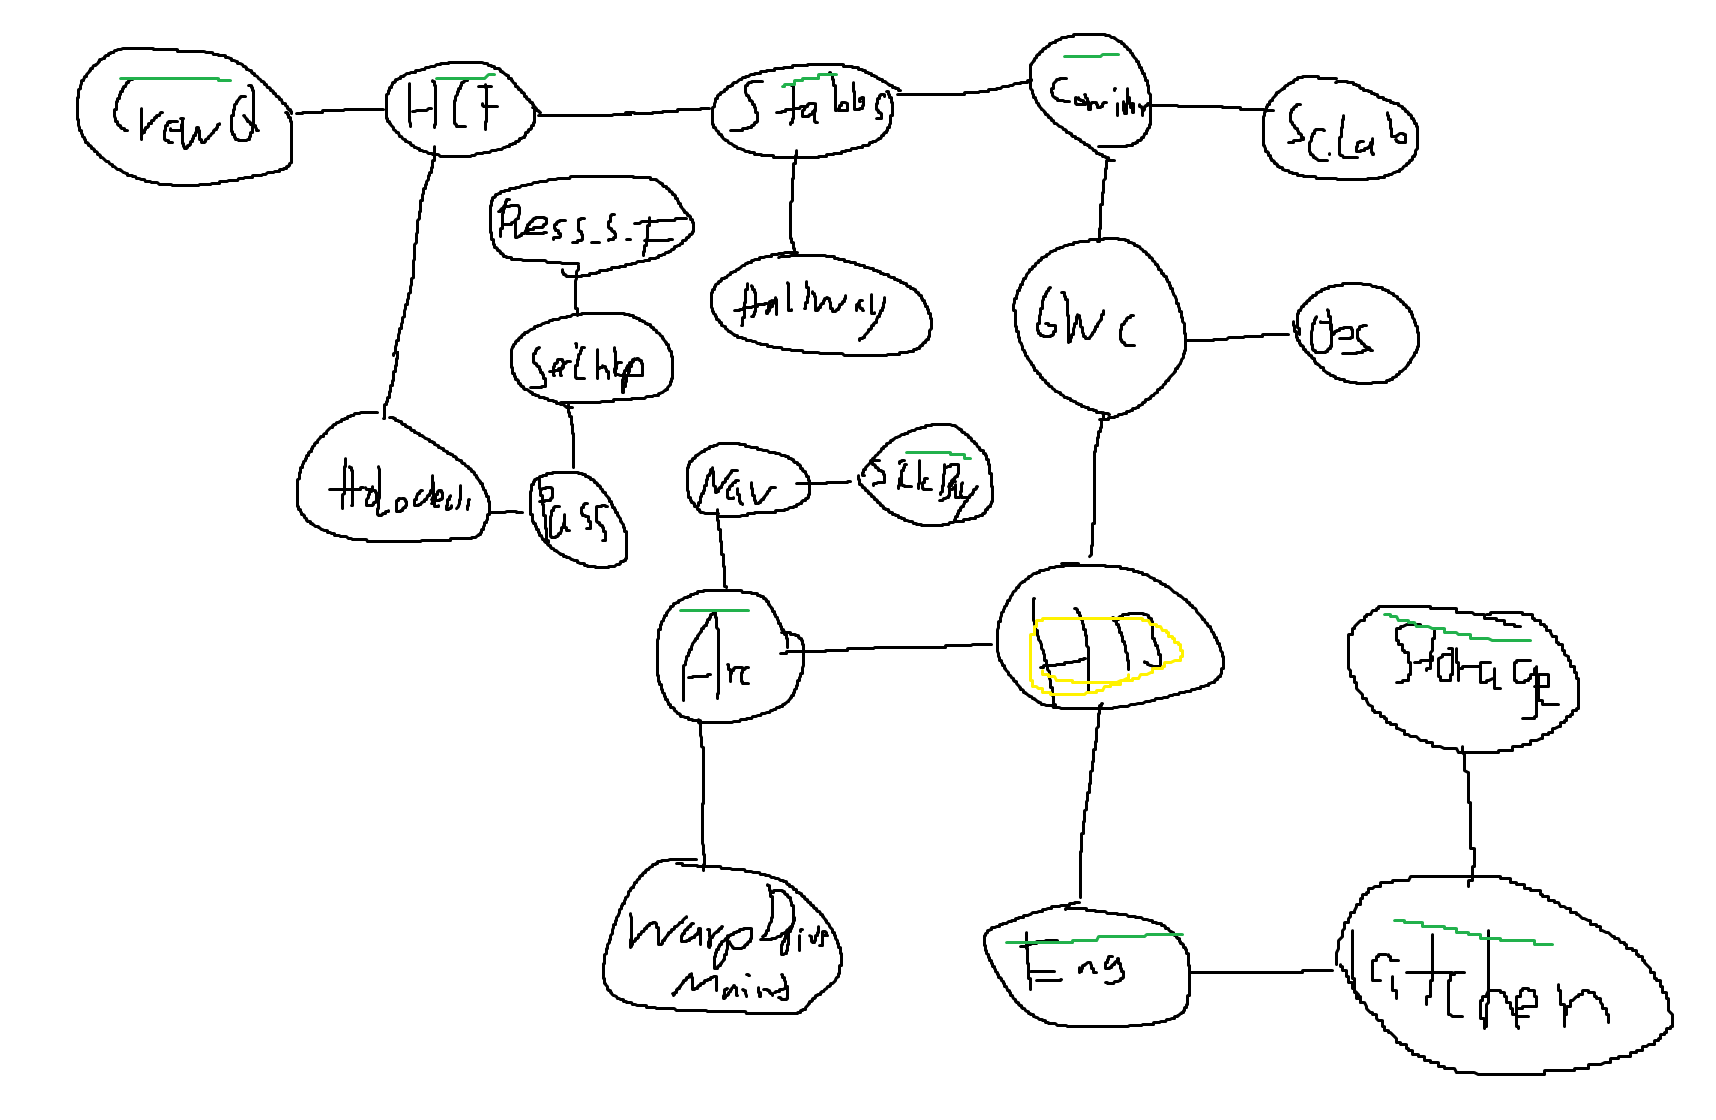 CrewQ
HCF
Stabbs
Sc.Lab
Ress_s_F
Hallway
GWC
Obs
Holodeck
Pass
Nav
SickBay
Arc
Storage
Warp Drive
Maint
Eng
Kitchen